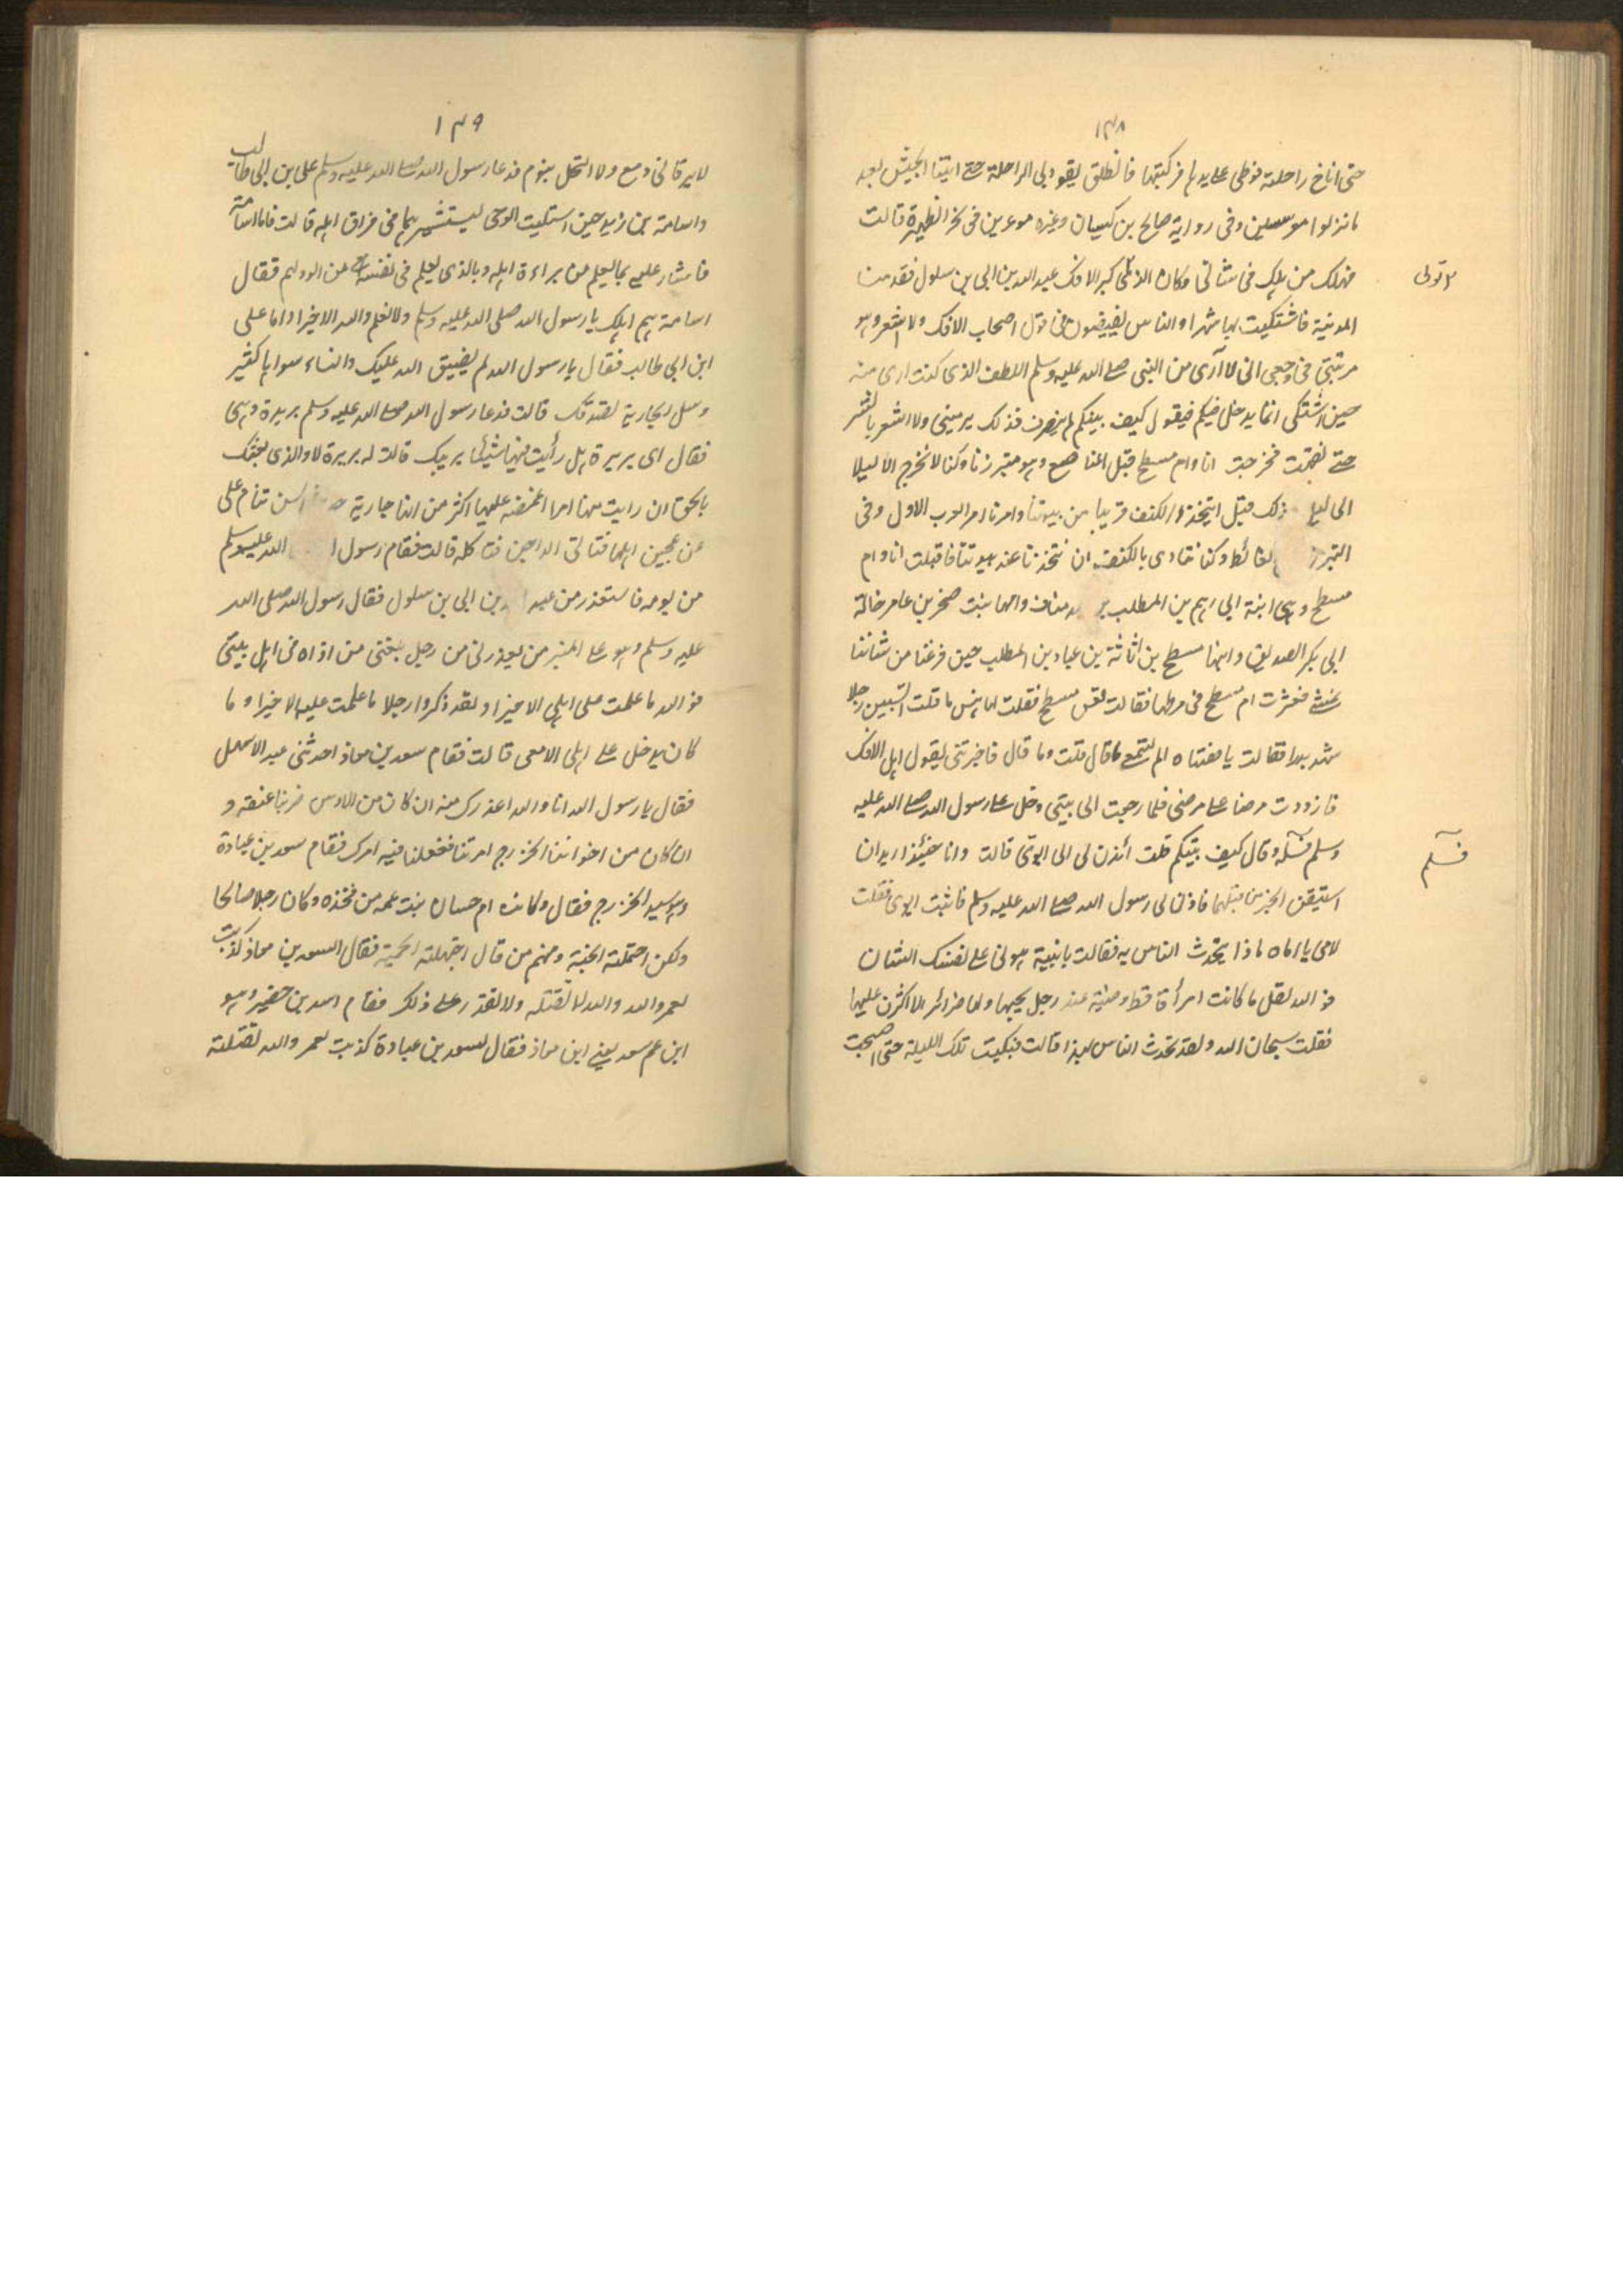 ١٤٨
حتى اناخ راحلته فوطى على يدها فركبتها فانطلق يقود بى الراحلة حتى اتينا الجيش بعد
ما نزلوا معرسين وفى رواية صالح بن كيسان وغيره موغرين فى نحر الظهيرة قالت
فهلك من هلك فى شانى وكان الذى كبر الافك عبد الله بن ابى بن سلول فقدمنا
تولى
المدينة فاشتكيت بها شهرا والناس يفيضون فى قول اصحاب الافك ولا اشعر وهو
يريبنى فى وجعى انى لا أرى من النبى صلى الله عليه وسلم اللطف الذى كنت ارى منه
حين اشتكى انما يدخل فيسلم فيقول كيف تيكم ثم ينصرف فذلك يريبنى ولا اشعر بالشر
حتى نقهت فخرجت انا وام مسطح قبل المناصع وهو متبرزنا وكنا لا نخرج الا ليلا
الى ليل ذلك قبل ان نتخذ الكنف قريبا من بيوتنا وامرنا امر العرب الاول وفى
التبرز الغائط وكنا نتاذى بالكنف ان نتخذها عند بيوتنا فاقبلت انا وام
مسطح وهى ابنة ابى رهم بن المطلب بن مناف وامها بنت صخر بن عامر خالة
ابى بكر الصديق وابنها مسطح بن اثاثة بن عباد بن المطلب حين فرغنا من شاننا
نمشى فعثرت ام مسطح فى مرطها فقالت تعس مسطح فقلت لها بئس ما قلت اتسبين رجلا
شهد بدرا فقالت يا هنتاه الم تسمعى ما قال قلت وما قال فاخبرتنى بقول اهل الافك
فازددت مرضا على مرضى فلما رجعت الى بيتى دخل على رسول الله صلى الله عليه
وسلم فسلم وقال كيف تيكم قلت ائذن لى الى ابوى قالت وانا حينئذ اريد ان
فسلم
استيقن الخبر من قبلهما فاذن لى رسول الله صلى الله عليه وسلم فاتيت ابوى فقلت
لامى يا اماه ماذا يتحدث الناس به فقالت يا بنية هونى على نفسك الشان
فو الله لقل ما كانت امرأة قط وضيئة عند رجل يحبها ولها ضرائر الا اكثرن عليها
فقلت سبحان الله ولقد تحدث الناس بهذا قالت فبكيت تلك الليلة حتى اصبحت
١٤٩
لا يرقا لى دمع ولا اكتحل بنوم فدعا رسول الله صلى الله عليه وسلم على بن ابى طالب
واسامة بن زيد حين استلبث الوحى ليستشيرهما فى فراق اهله قالت فاما اسامة
فاشار عليه بما يعلم من براءة اهله وبالذى يعلم فى نفسه من الود لهم فقال
اسامة هم اهلك يا رسول الله صلى الله عليه وسلم ولا نعلم والله الا خيرا واما على
ابن ابى طالب فقال يا رسول الله لم يضيق الله عليك والنساء سواها كثير
وسل الجارية تصدقك قالت فدعا رسول الله صلى الله عليه وسلم بريرة وهى
فقال اى بريرة هل رأيت فيها شيئا يريبك قالت له بريرة لا والذى بعثك
بالحق ان رايت منها امرا اغمضه عليها اكثر من انها جارية السن تنام على
عن عجين اهلها فتاتى الداجن فتاكله قالت فقام رسول الله عليه وسلم
من يومه فاستعذر من عبد بن ابى بن سلول فقال رسول الله صلى الله
عليه وسلم وهو على المنبر من يعذرنى من رجل بلغنى من اذاه فى اهل بيتى
فو الله ما علمت على اهلى الا خيرا ولقد ذكروا رجلا ما علمت عليه الا خيرا وما
كان يدخل على اهلى الا معى قالت فقام سعد بن معاذ احد بنى عبد الاشهل
فقال يا رسول الله انا والله اعذرك منه ان كان من الاوس ضربنا عنقه و
ان كان من اخواننا الخزرج امرتنا ففعلنا فيه امرك فقام سعد بن عبادة
وهو سيد الخزرج فقال وكانت ام حسان بنت عمه من فخذه وكان رجلا صالحا
ولكن احتملته الحمية ومنهم من قال اجتهلته الحمية فقال لسعد بن معاذ كذبت
لعمر والله والله لا تقتله ولا تقدر على ذلك فقام اسيد بن حضير وهو
ابن عم سعد يعنى ابن معاذ فقال لسعد بن عبادة كذبت لعمر والله لنقتلنه